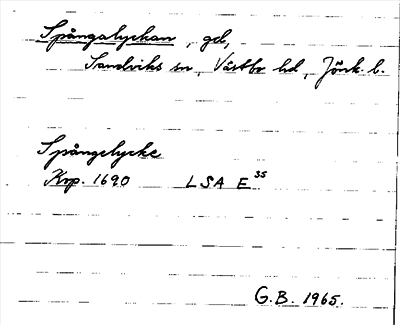 Spångalyckan, gd,
Sandviks sn, Västbo hd, Jönk. l.
Spångelycke
Krp. 1690 LSA E 35
G.B. 1965.